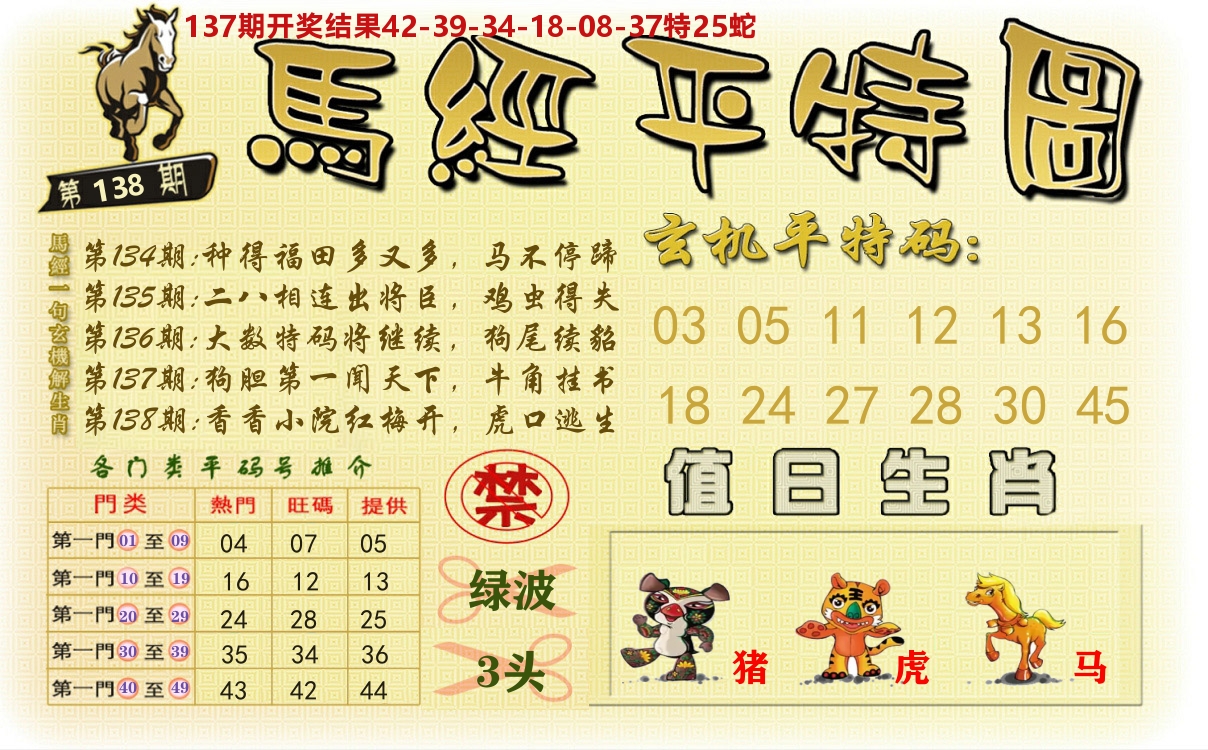 137期开奖结果42-39-34-18-08-37特25蛇
馬經平特圖
第138期
馬經一句玄機解生肖
第134期:种得福田多又多，马不停蹄
第135期:二八相连出将臣，鸡虫得失
第136期:大数特码将继续，狗尾续貂
第137期:狗胆第一闻天下，牛角挂书
第138期:香香小院红梅开，虎口逃生
玄机平特码:
03 05 11 12 13 16
18 24 27 28 30 45
各门类平码号推介
門类 熱門 旺碼 提供
第一門01至09 04 07 05
第一門10至19 16 12 13
第一門20至29 24 28 25
第一門30至39 35 34 36
第一門40至49 43 42 44
禁
绿波
3头
值日生肖
猪 虎 马